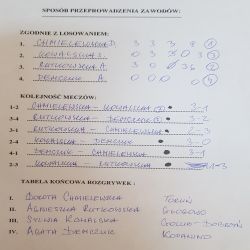 SPOSÓB PRZEPROWADZENIA ZAWODÓW:
ZGODNIE Z LOSOWANIEM:
1. CHMIELEWSKA D. 3 3 3
2. KOWALSKA S. 0 3
3. RUTKOWSKA A. 3
4. DEMCZUK A. 0 0 0
KOLEJNOŚĆ MECZÓW:
1-2 CHMIELEWSKA - KOWALSKA 3-1
RUTKOWSKA - DEMCZUK 3-
RUTKOWSKA - CHMIELEWSKA 2-3
KOWALSKA - DEMCZUK 3-0
DEMCZUK - CHMIELEWSKA 0-3
2-3 KOWALSKA - RUTKOWSKA 1-3
TABELA KOŃCOWA ROZGRYWEK:
I. DOROTA CHMIELEWSKA TORUŃ
II. AGNIESZKA RUTKOWSKA
III. SYLWIA KOWALSKA DOBRZYŃ
IV. AGATA DEMCZUK